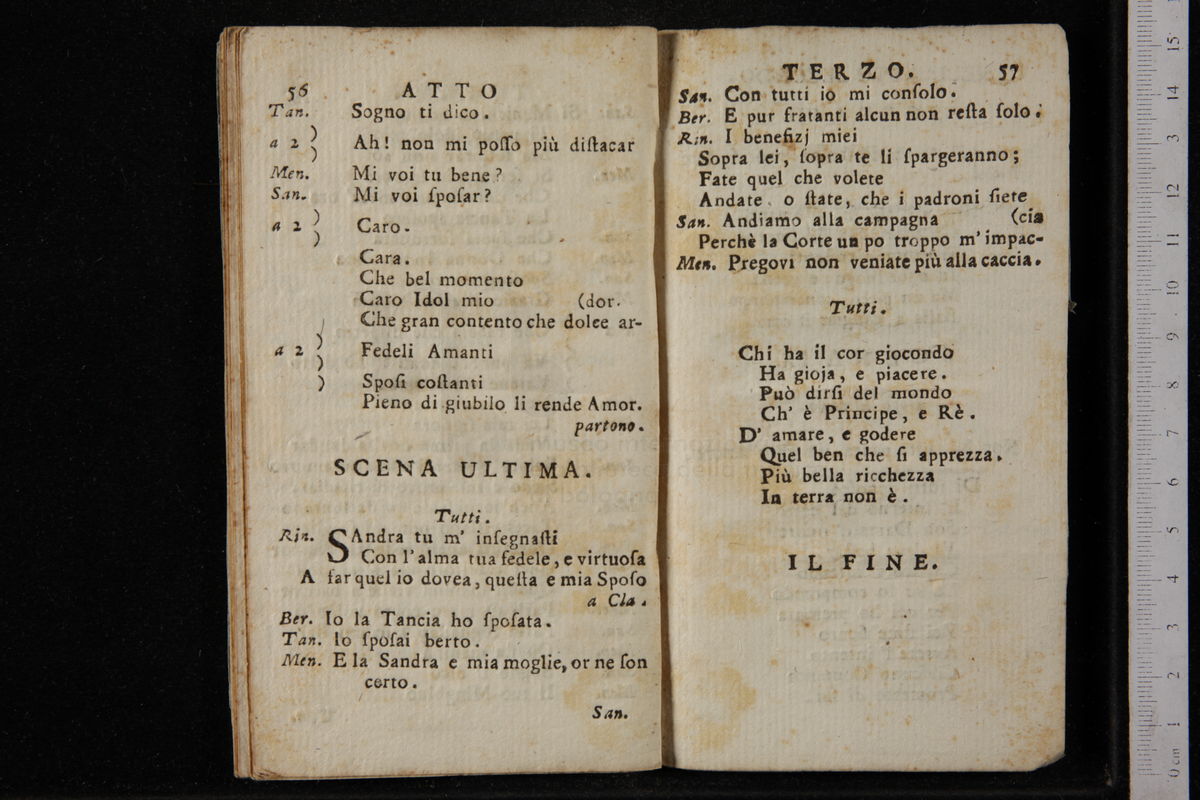 56 ATTO
Tan. Sogno ti dico.
a 2 ) Ah! non mi poſſo più diſtacar
)
Men. Mi voi tu bene?
San. Mi voi ſpoſar?
a 2 ) Caro.
)
Cara.
Che bel momento
Caro Idol mio (dor.
Che gran contento che dolce ar-
a 2 ) Fedeli Amanti
)
) Spoſi coſtanti
Pieno di giubilo li rende Amor.
partono.
SCENA ULTIMA.
Tutti.
Rin. SAndra tu m' inſegnaſti
Con l'alma tua fedele, e virtuoſa
A far quel io dovea, queſta e mia Spoſo
a Cla.
Ber. Io la Tancia ho ſpoſata.
Tan. Io ſpoſai berto.
Men. E la Sandra e mia moglie, or ne ſon
certo.
San.
TERZO. 57
San. Con tutti io mi conſolo.
Ber. E pur fratanti alcun non reſta ſolo.
Rin. I benefizj miei
Sopra lei, ſopra te li ſpargeranno;
Fate quel che volete
Andate, o ſtate, che i padroni ſiete
San. Andiamo alla campagna (cia
Perchè la Corte un po troppo m' impac-
Men. Pregovi non veniate più alla caccia.
Tutti.
Chi ha il cor giocondo
Ha gioja, e piacere.
Può dirſi del mondo
Ch' è Principe, e Rè.
D' amare, e godere
Quel ben che ſi apprezza.
Più bella ricchezza
In terra non è.
IL FINE.
0 cm 1 2 3 4 5 6 7 8 9 10 11 12 13 14 15